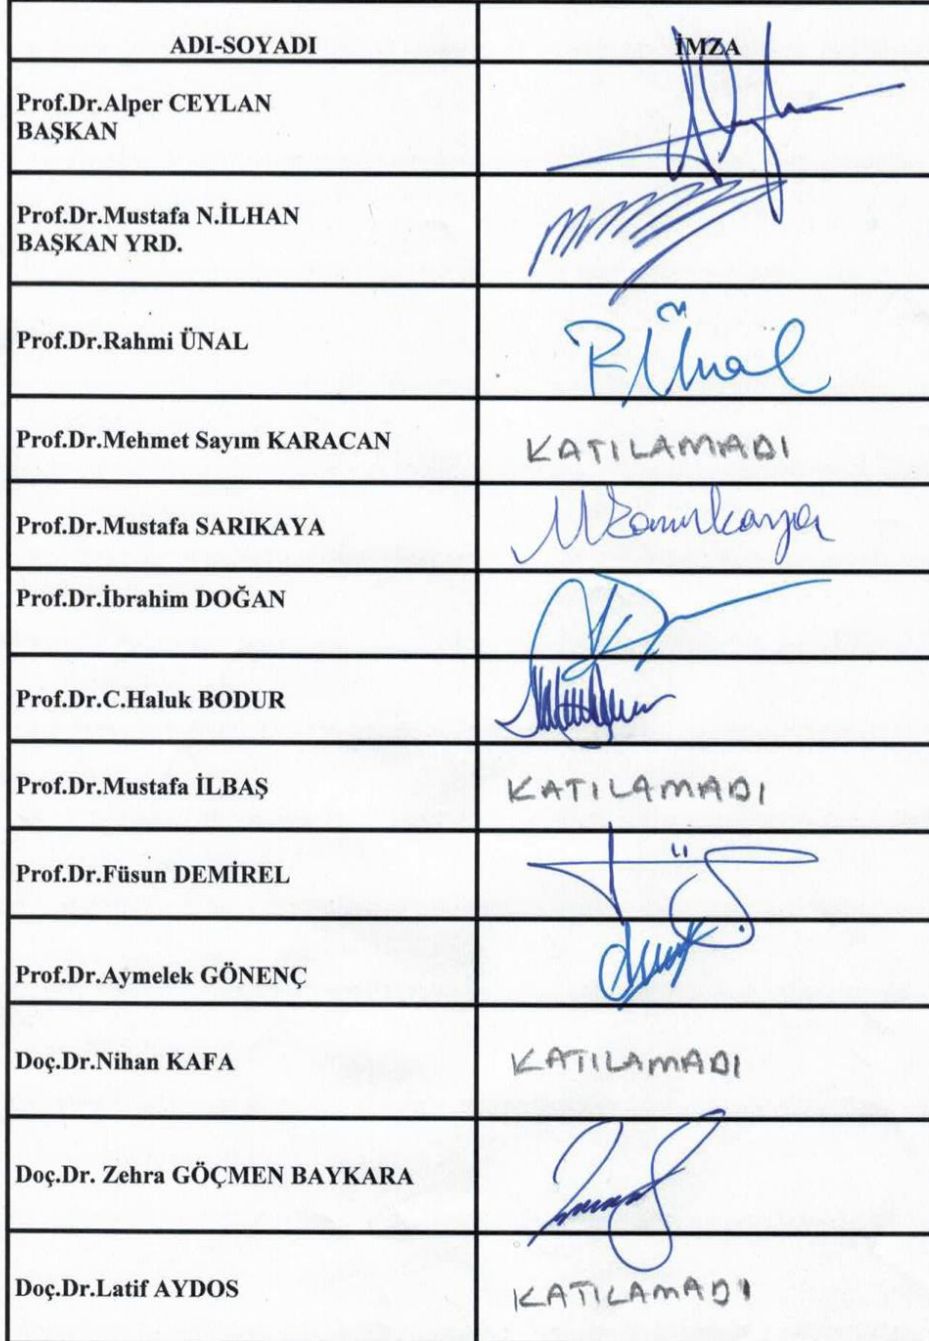 ADI-SOYADI İMZA
Prof.Dr.Alper CEYLAN
BAŞKAN
Prof.Dr.Mustafa N.İLHAN
BAŞKAN YRD.
Prof.Dr.Rahmi ÜNAL R.Ünal
Prof.Dr.Mehmet Sayım KARACAN KATILAMADI
Prof.Dr.Mustafa SARIKAYA MSarıkaya
Prof.Dr.İbrahim DOĞAN
Prof.Dr.C.Haluk BODUR
Prof.Dr.Mustafa İLBAŞ KATILAMADI
Prof.Dr.Füsun DEMİREL
Prof.Dr.Aymelek GÖNENÇ
Doç.Dr.Nihan KAFA KATILAMADI
Doç.Dr. Zehra GÖÇMEN BAYKARA
Doç.Dr.Latif AYDOS KATILAMADI